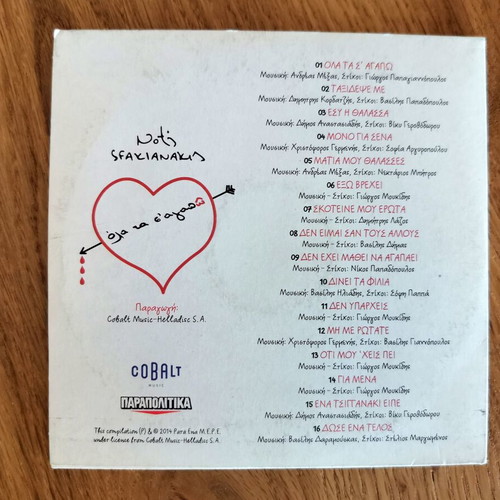 Νότης
SFAKIANAKIS
όλα τα σ'αγαπώ
Παραγωγή:
Cobalt Music-Helladisc S.A.
COBALT
MUSIC
ΠΑΡΑΠΟΛΙΤΙΚΑ
This compilation (P) & © 2014 Para Ena M.E.P.E.
under license from Cobalt Music-Helladisc S.A.
01 ΟΛΑ ΤΑ Σ' ΑΓΑΠΩ
Μουσική: Ανδρέας Μέξας, Στίχοι: Γιώργος Παπαγιαννόπουλος
02 ΤΑΞΙΔΕΨΕ ΜΕ
Μουσική: Δημήτρης Κορδατζής, Στίχοι: Βασίλης Παπαδόπουλος
03 ΕΣΥ Η ΘΑΛΑΣΣΑ
Μουσική: Δήμος Αναστασιάδης, Στίχοι: Βίκυ Γεροθόδωρου
04 ΜΟΝΟ ΓΙΑ ΣΕΝΑ
Μουσική: Χριστόφορος Γερμενής, Στίχοι: Σοφία Αργυροπούλου
05 ΜΑΤΙΑ ΜΟΥ ΘΑΛΑΣΣΕΣ
Μουσική: Ανδρέας Μέξας, Στίχοι: Νεκτάριος Μπήτρος
06 ΕΞΩ ΒΡΕΧΕΙ
Μουσική - Στίχοι: Γιώργος Μουκίδης
07 ΣΚΟΤΕΙΝΕ ΜΟΥ ΕΡΩΤΑ
Μουσική - Στίχοι: Δημήτρης Λάζος
08 ΔΕΝ ΕΙΜΑΙ ΣΑΝ ΤΟΥΣ ΑΛΛΟΥΣ
Μουσική - Στίχοι: Βασίλης Δήμας
09 ΔΕΝ ΕΧΕΙ ΜΑΘΕΙ ΝΑ ΑΓΑΠΑΕΙ
Μουσική - Στίχοι: Νίκος Παπαδόπουλος
10 ΔΙΝΕΙ ΤΑ ΦΙΛΙΑ
Μουσική: Βασίλης Ηλιάδης, Στίχοι: Σόφη Παππά
11 ΔΕΝ ΥΠΑΡΧΕΙΣ
Μουσική - Στίχοι: Γιώργος Μουκίδης
12 ΜΗ ΜΕ ΡΩΤΑΤΕ
Μουσική: Χριστόφορος Γερμενής, Στίχοι: Βασίλης Γιαννόπουλος
13 ΟΤΙ ΜΟΥ 'ΧΕΙΣ ΠΕΙ
Μουσική - Στίχοι: Γιώργος Μουκίδης
14 ΓΙΑ ΜΕΝΑ
Μουσική - Στίχοι: Γιώργος Μουκίδης
15 ΕΝΑ ΤΣΙΓΓΑΝΑΚΙ ΕΙΠΕ
Μουσική: Δήμος Αναστασιάδης, Στίχοι: Βίκυ Γεροθόδωρου
16 ΔΩΣΕ ΕΝΑ ΤΕΛΟΣ
Μουσική: Βασίλης Δαραμούσκας, Στίχοι: Στέλιος Μαρχωμένος